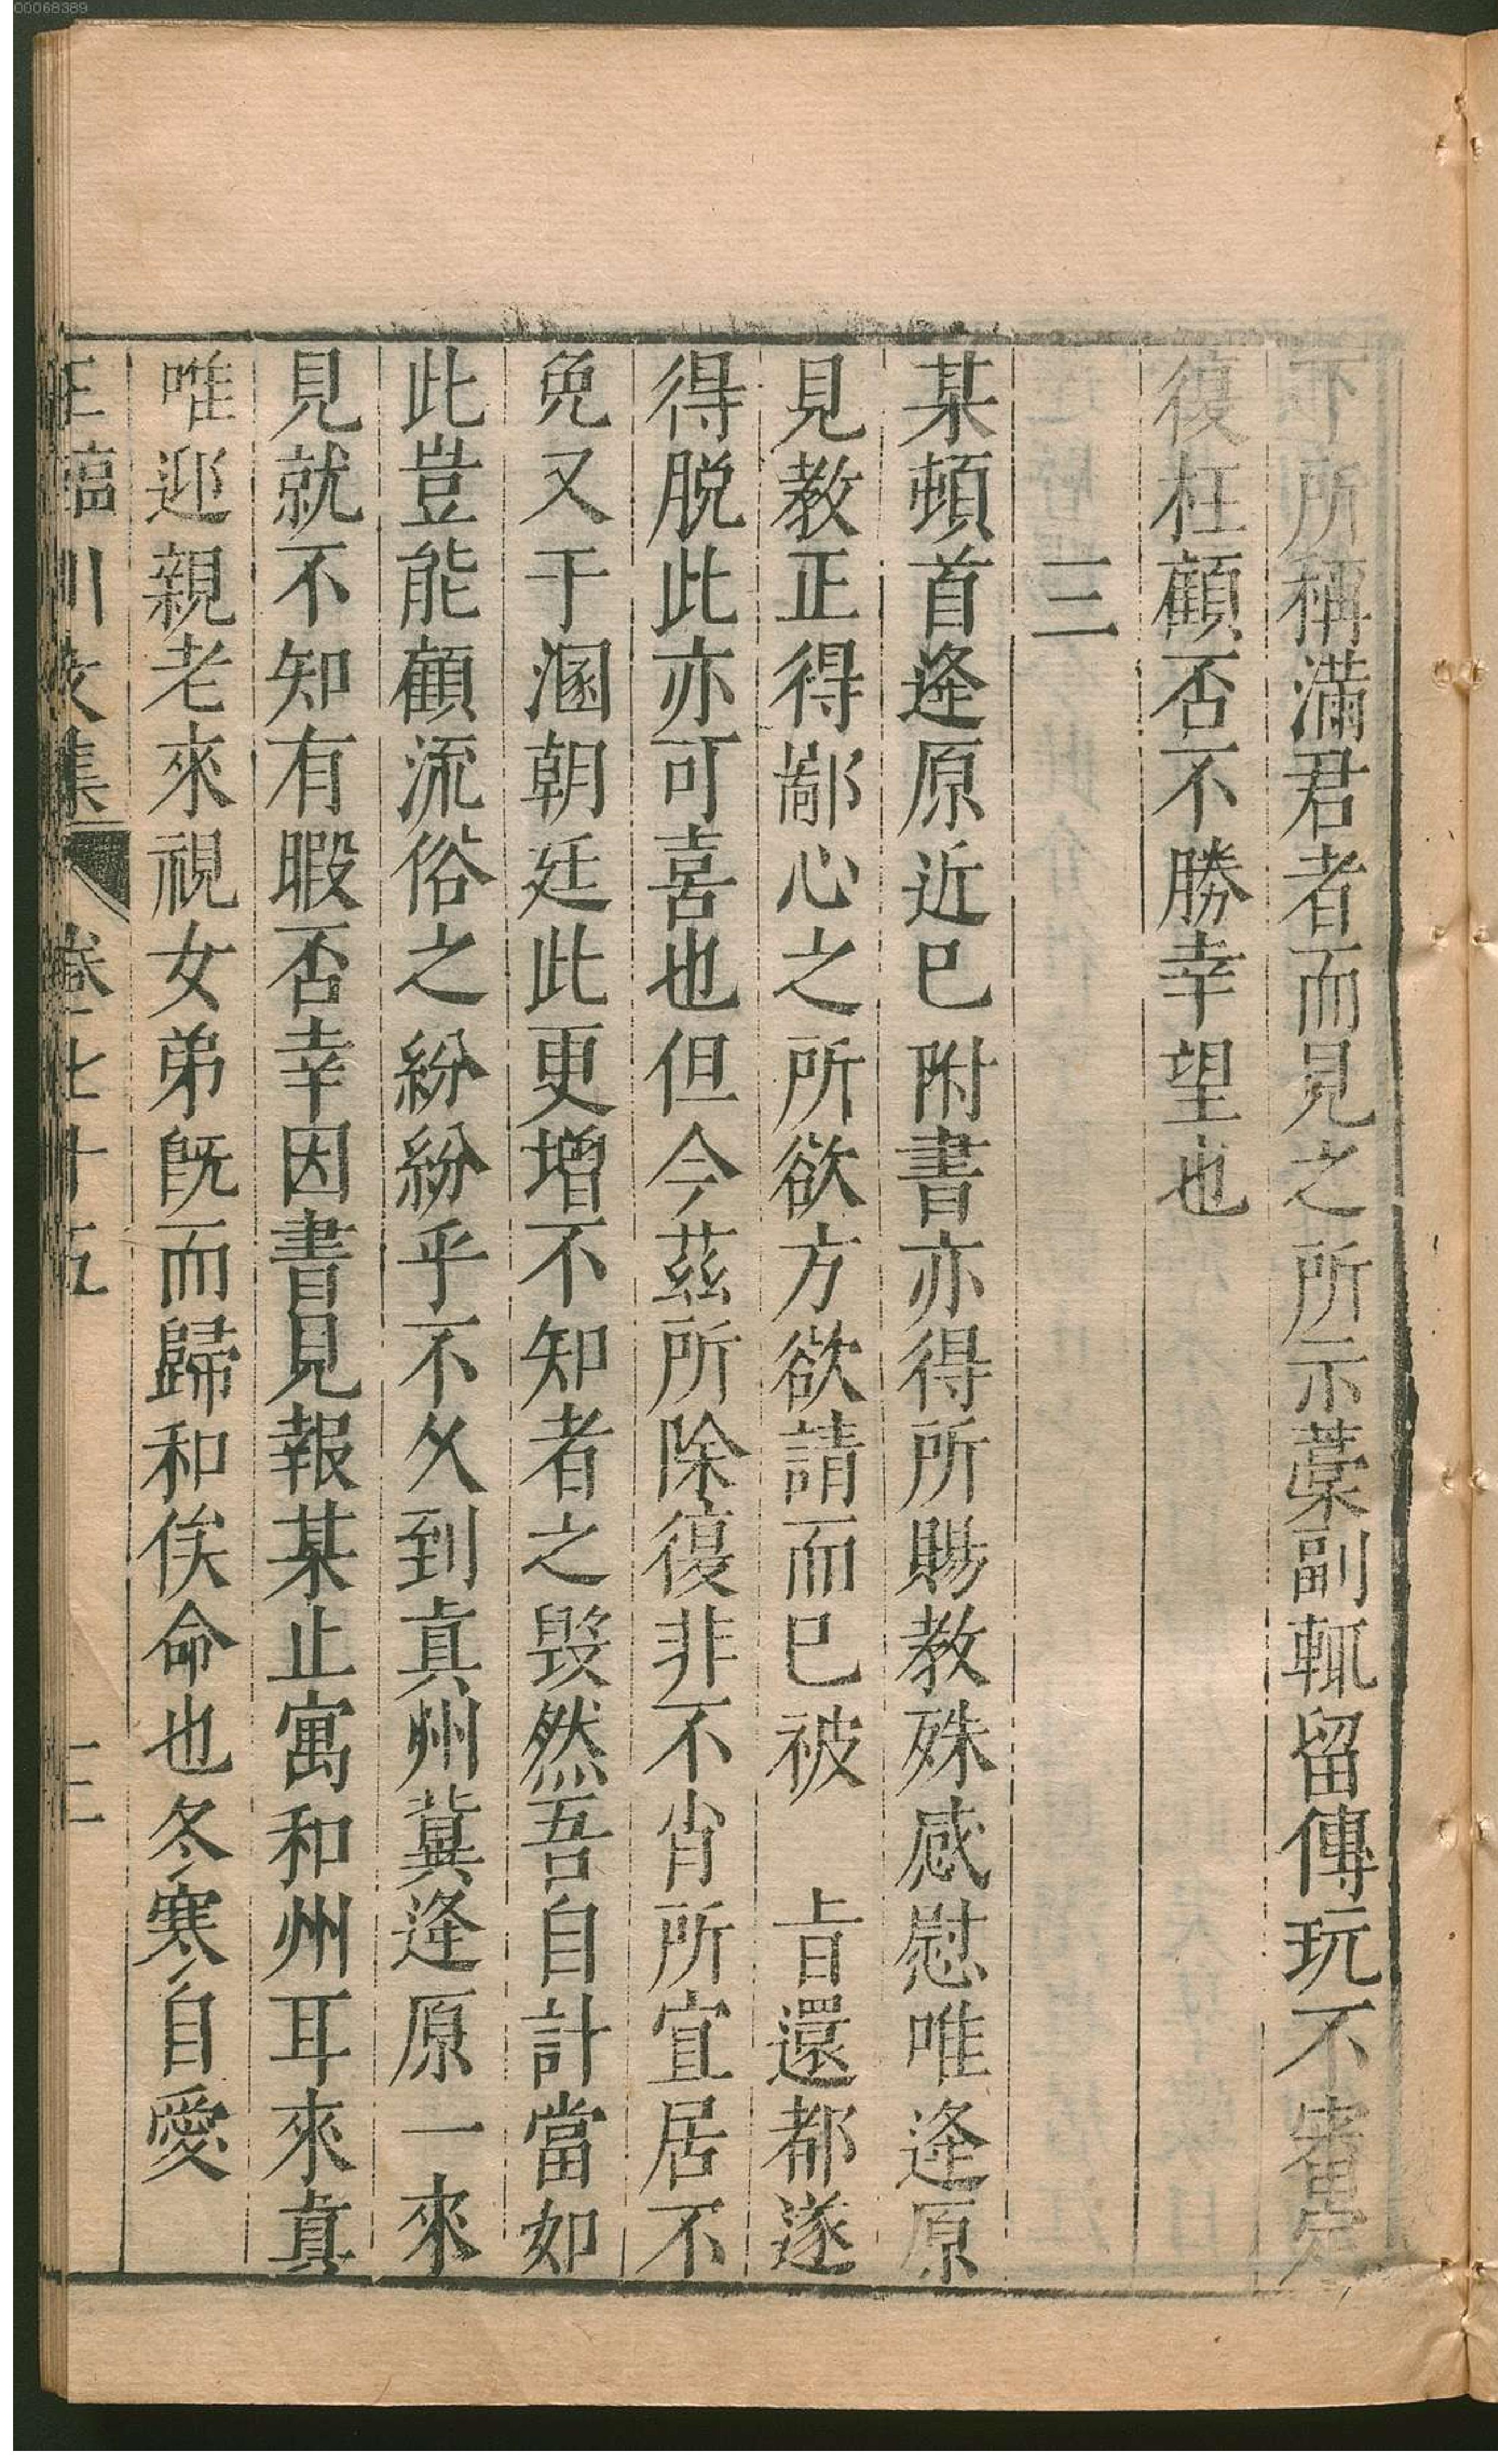 00068389
下所稱滿君者而見之所示藁副輒留傳玩不審定
復枉顧否不勝幸望也
三
某頓首逢原近已附書亦得所賜教殊感慰唯逢原
見教正得鄙心之所欲方欲請而已被 旨還都遂
得脱此亦可喜也但今茲所除復非不肖所宜居不
免又于溷朝廷此更增不知者之毀然吾自計當如
此豈能顧流俗之紛紛乎不久到真州冀逢原一來
見就不知有暇否幸因書見報某止寓和州耳來真
唯迎親老來視女弟既而歸和俟命也冬寒自愛
王臨川文集 卷七十五 十三